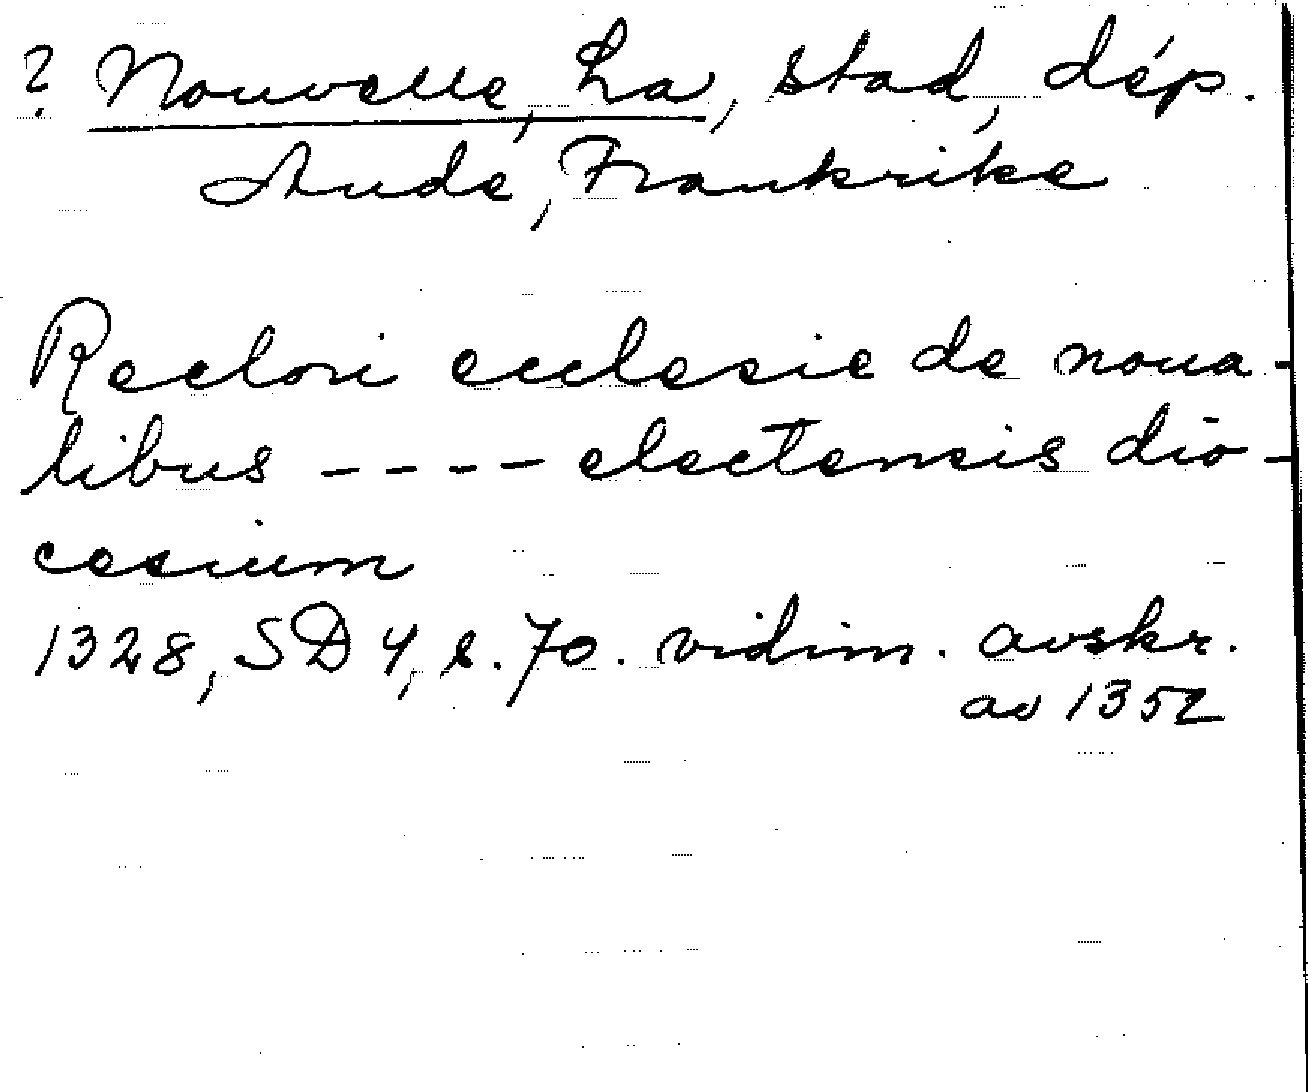 ? Nouvelle, La, stad, dép.
Aude, Frankrike
Rectori ecclesie de noua-
libus ---- electensis dio-
cesium
1328, SD 4, s. 70. vidim. avskr.
av 1352